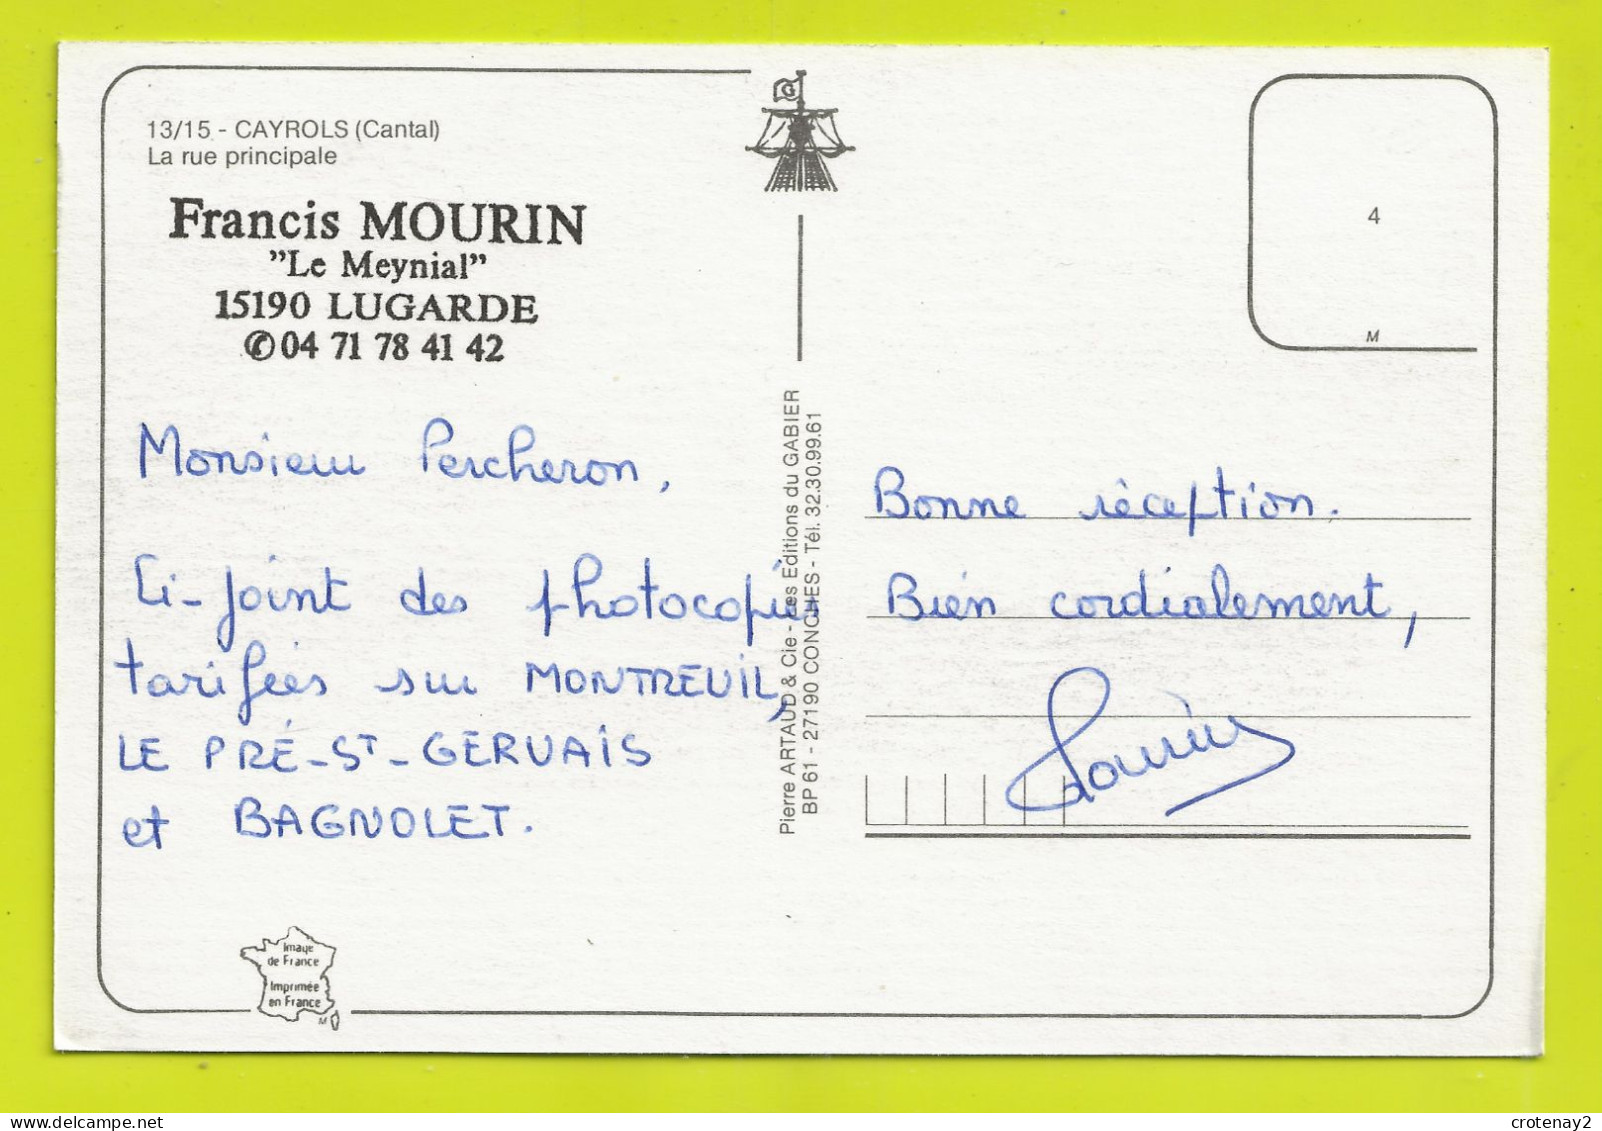 13/15 - CAYROLS (Cantal)
La rue principale
Francis MOURIN
"Le Meynial"
15190 LUGARDE
✆ 04 71 78 41 42
Monsieur Percheron,
Ci-joint des photocopies
tarifées sur MONTREUIL,
LE PRÉ-ST-GERVAIS
et BAGNOLET.
Image
de France
Imprimée
en France
M
G
Pierre ARTAUD & Cie - Les Editions du GABIER
BP 61 - 27190 CONCHES - Tél. 32.30.99.61
4
M
Bonne réception.
Bien cordialement,
Mourin
crotenay2